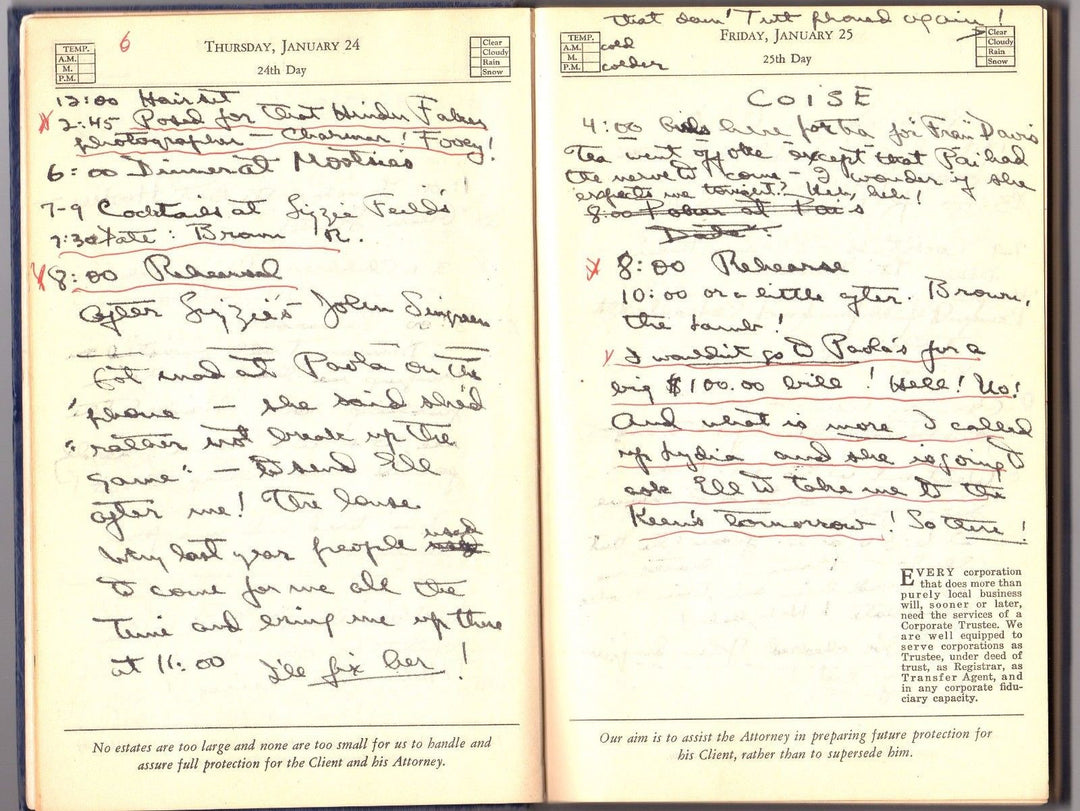 6
TEMP.
A.M.
M.
P.M.
THURSDAY, JANUARY 24
24th Day
Clear
Cloudy
Rain
Snow
12:00 Hair set
2:45 Posed for that Hindu Fakey
photographer — Charmer! Fooey!
6:00 Dinner at
7-9 Cocktails at Lizzie
7:30 Date: Brown R.
8:00 Rehearsal
After Lizzie's John
Got mad at Paola on the
phone — she said she'd
"rather not break up the
game" — to send Ell
after me! The louse
Why last year people used
to come for me all the
time and bring me up there
at 11:00 I'll fix her!
No estates are too large and none are too small for us to handle and
assure full protection for the Client and his Attorney.
that dam' Tutt phoned again!
TEMP.
A.M.
M.
P.M.
cold
colder
FRIDAY, JANUARY 25
25th Day
Clear
Cloudy
Rain
Snow
COISE
4:00 here for tea for Fran Davis
Tea went off oke except that Pai had
the nerve to come — I wonder if she
expects me tonight? Heh, heh!
8:00 Poker at Pai's
Date
8:00 Rehearse
10:00 or a little after. Brown,
the lamb!
I wouldn't go to Paola's for a
big $100.00 bill! Hell! No!
And what is more I called
up Lydia and she is going to
ask Ell to take me to the
Keen's tomorrow! So there!
EVERY corporation
that does more than
purely local business
will, sooner or later,
need the services of a
Corporate Trustee. We
are well equipped to
serve corporations as
Trustee, under deed of
trust, as Registrar, as
Transfer Agent, and
in any corporate fidu-
ciary capacity.
Our aim is to assist the Attorney in preparing future protection for
his Client, rather than to supersede him.